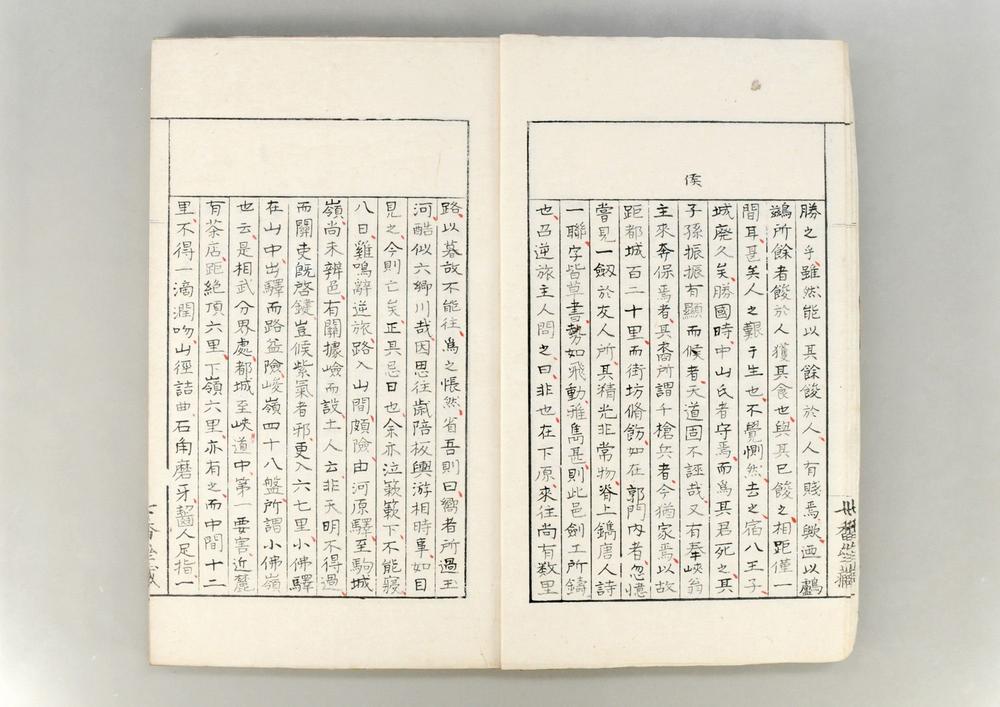 俟
勝之乎雖然能以其餘餕於人人有賤焉歟画以鸕
鷀所餘者餕於人獲其食也與其已餕之相距僅一
間耳甚美人之艱于生也不覺惻然去之宿八王子
城廃久矣勝國時中山氏者守焉而爲其君死之其
子孫振振有顯而候者天道固不誣哉又有奉峽翁
主來奔保焉者其裔所謂千槍兵者今猶家焉以故
距都城百二十里而街坊脩飭如在郭門内者忽憶
嘗見一劔於友人所其精光非常物脊上鐫唐人詩
一聯字皆草書勢如飛動雅雋甚則此邑劍工所鑄
也召逆旅主人問之曰非也在下原來往尚有数里
路以暮故不能往爲之悵然省吾則曰嚮者所過玉
河酷似六鄉川哉因思往歳陪板輿游相時事如目
見之今則亡矣正其忌日也余亦泣簌簌下不能寢
八日雞鳴辭逆旅路入山間頗險由河原驛至駒城
嶺尚未辨色有關據嶮而設土人云非天明不得過
而關吏旣啓鍵豈候紫氣者邪更入六七里小佛驛
在山中出驛而路益險峻嶺四十八盤所謂小佛嶺
也云是相武分界處都城至峽道中第一要害近麓
有茶店距絶頂六里下嶺六里亦有之而中間十二
里不得一滴潤吻山徑詰曲石角磨牙齧人足指一